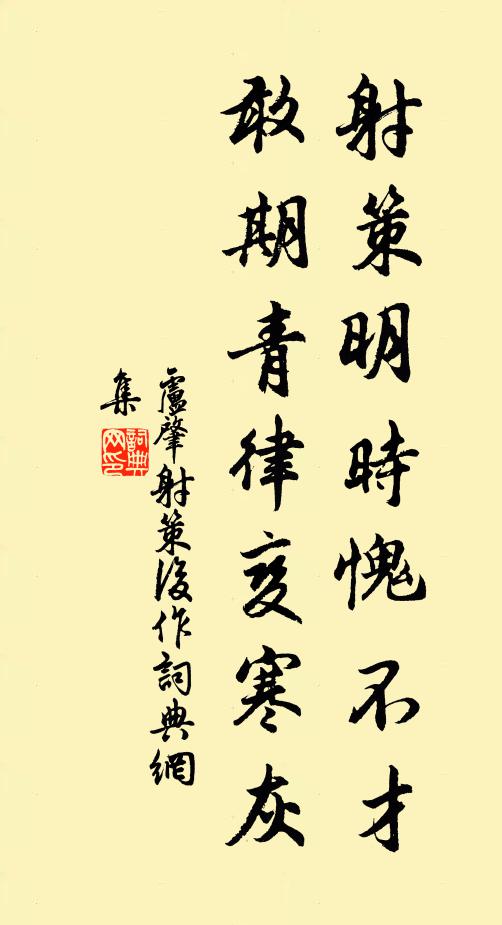 射策明時愧不才
敢期青律变寒灰
盧肇射策後作詞典網
集
詞典网印